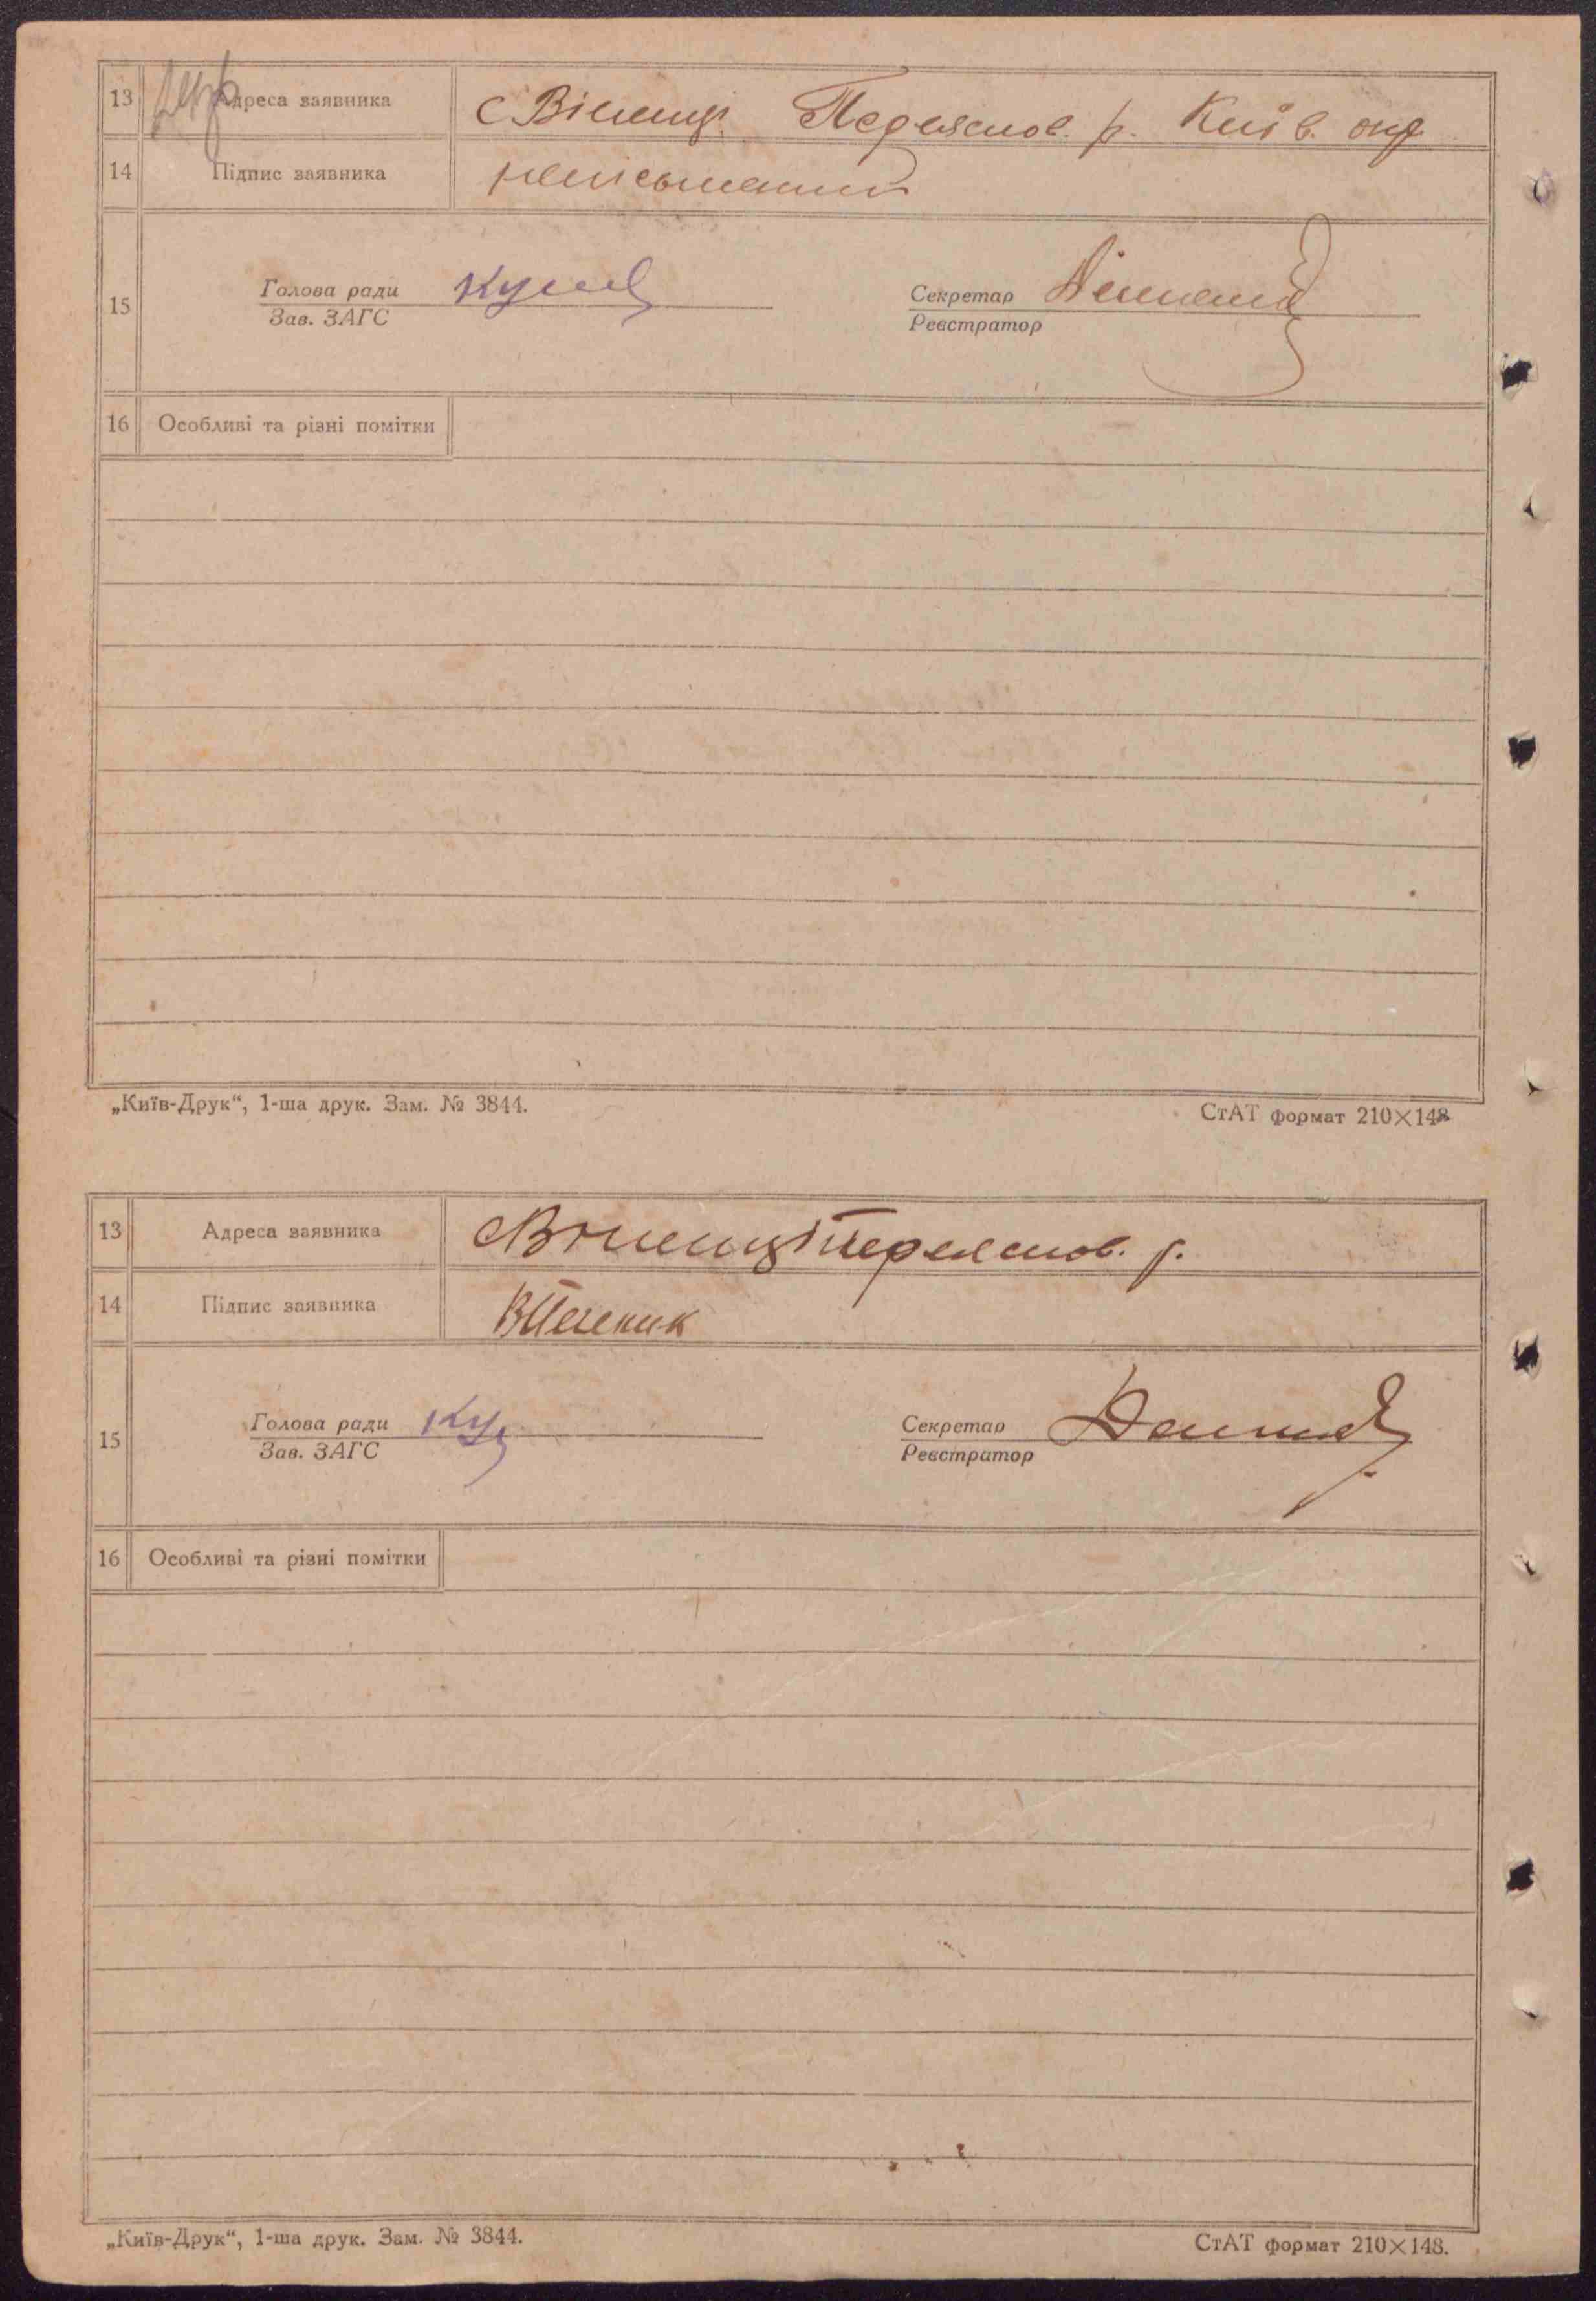 13 Адреса заявника с Віненці Переяслов. р. Київ. окр
14 Підпис заявника неписьменний
Голова ради Секретар
15
Зав. ЗАГС Реєстратор
16 Особливі та різні помітки
„Київ-Друк“, 1-ша друк. Зам. № 3844. СтАТ формат 210×148
13 Адреса заявника с Віненці Переяслов. р.
14 Підпис заявника
Голова ради Секретар
15
Зав. ЗАГС Реєстратор
16 Особливі та різні помітки
„Київ-Друк“, 1-ша друк. Зам. № 3844. СтАТ формат 210×148.